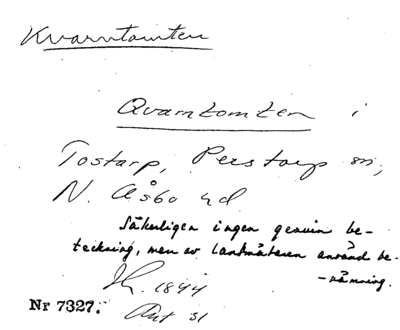 Kvarntomten
Qvarntomten i
Tostarp, Perstorp sn,
N. Åsbo hd
Säkerligen ingen genuin be-
teckning, men av lantmätaren använd be-
-nämning.
1844
Nr 7327. Akt 31